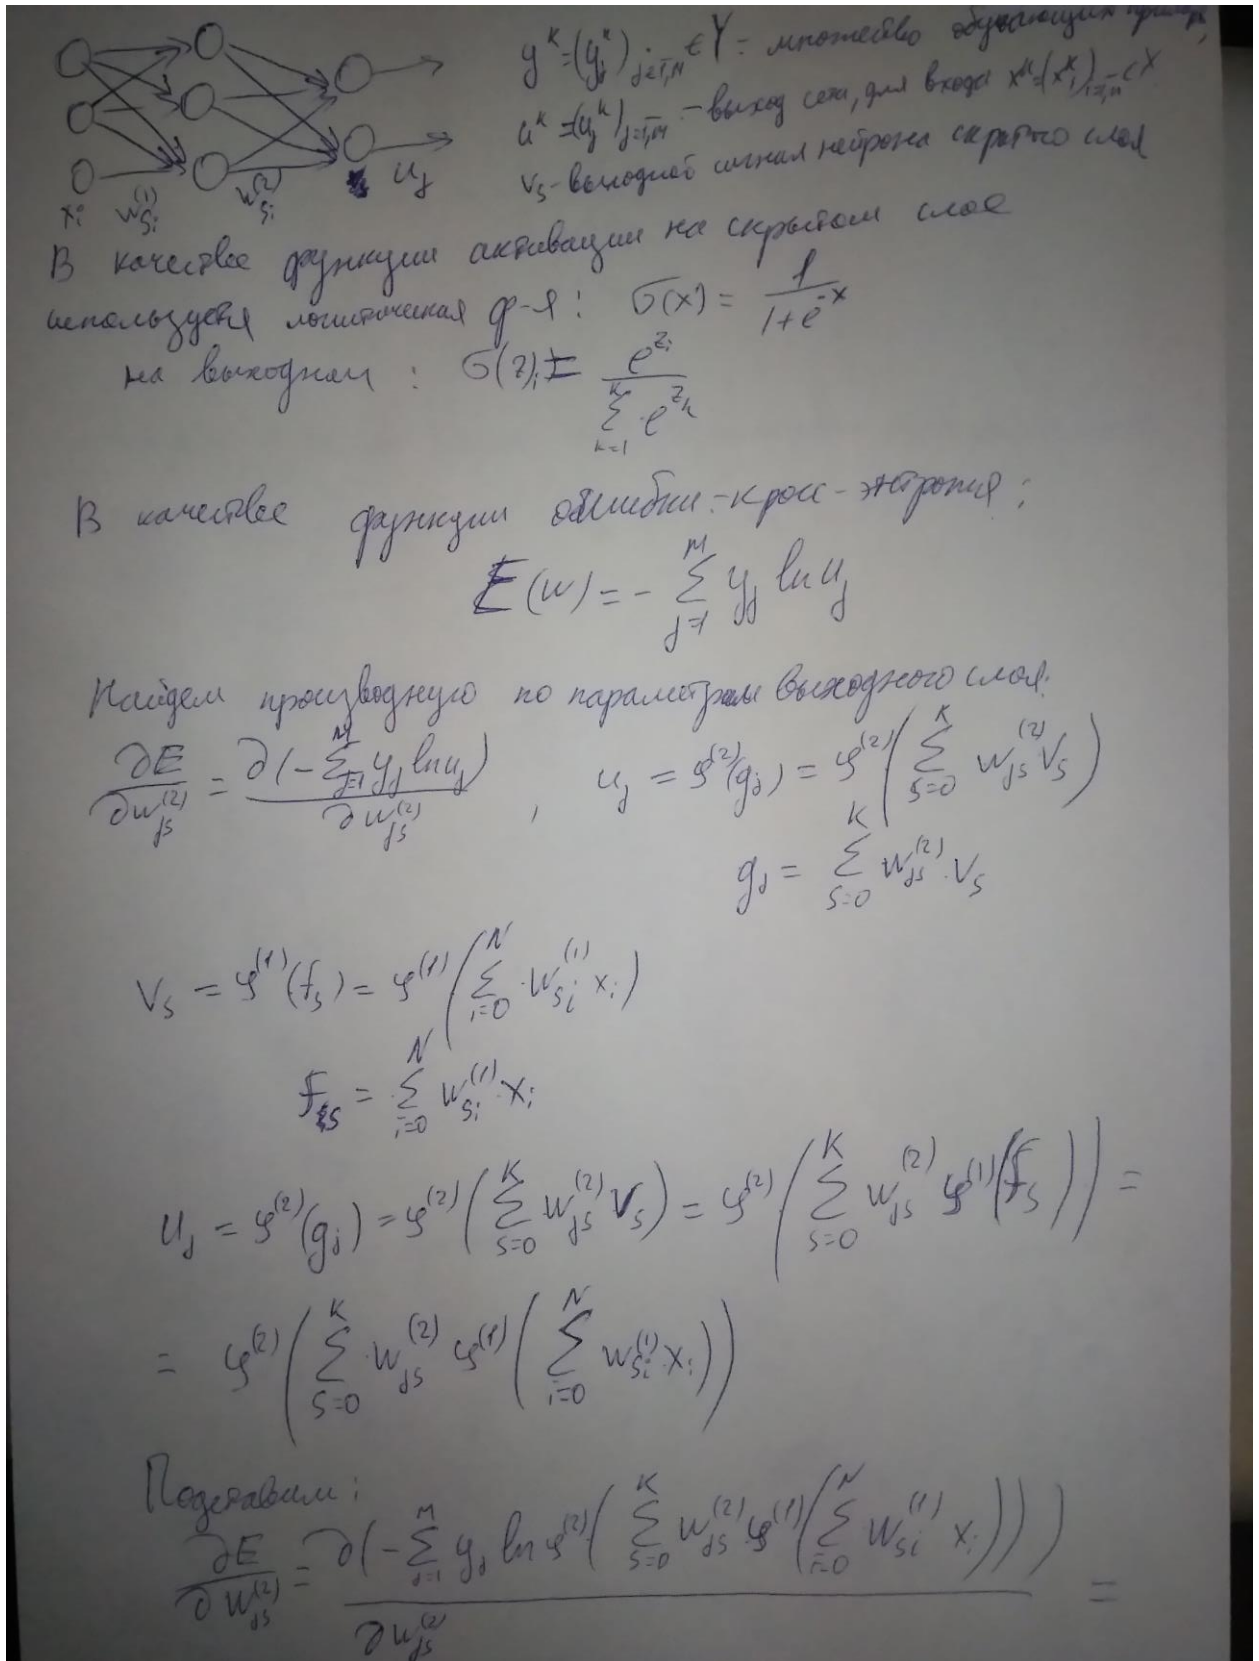 y^k = (y_j^k)_{j=1,M} ∈ Y - множество обучающих
u^k = (u_j^k)_{j=1,M} - выход сети, для входа x^k = (x_i^k)_{i=1,n} ∈ X
v_s - выходной сигнал нейрона скрытого слоя
x_i w_{si}^{(1)} w_{si}^{(2)} u_j
В качестве функции активации на скрытом слое
используется логистическая ф-я : σ(x) = 1/(1+e^{-x})
на выходном : σ(z)_i = e^{z_i} / Σ_{k=1}^{K} e^{z_k}
В качестве функции ошибки - кросс-энтропия :
E(w) = - Σ_{j=1}^{M} y_j ln u_j
Найдем производную по параметрам выходного слоя:
∂E/∂w_{js}^{(2)} = ∂(-Σ_{j=1}^{M} y_j ln u_j)/∂w_{js}^{(2)} , u_j = φ^{(2)}(g_j) = φ^{(2)}(Σ_{s=0}^{K} w_{js}^{(2)} v_s)
g_j = Σ_{s=0}^{K} w_{js}^{(2)} · v_s
v_s = φ^{(1)}(f_s) = φ^{(1)}(Σ_{i=0}^{N} w_{si}^{(1)} x_i)
f_s = Σ_{i=0}^{N} w_{si}^{(1)} · x_i
u_j = φ^{(2)}(g_j) = φ^{(2)}(Σ_{s=0}^{K} w_{js}^{(2)} v_s) = φ^{(2)}(Σ_{s=0}^{K} w_{js}^{(2)} φ^{(1)}(f_s)) =
= φ^{(2)}(Σ_{s=0}^{K} w_{js}^{(2)} φ^{(1)}(Σ_{i=0}^{N} w_{si}^{(1)} · x_i))
Подставим :
∂E/∂w_{js}^{(2)} = ∂(-Σ_{j=1}^{M} y_j ln φ^{(2)}(Σ_{s=0}^{K} w_{js}^{(2)} φ^{(1)}(Σ_{i=0}^{N} w_{si}^{(1)} x_i)))/∂w_{js}^{(2)} =